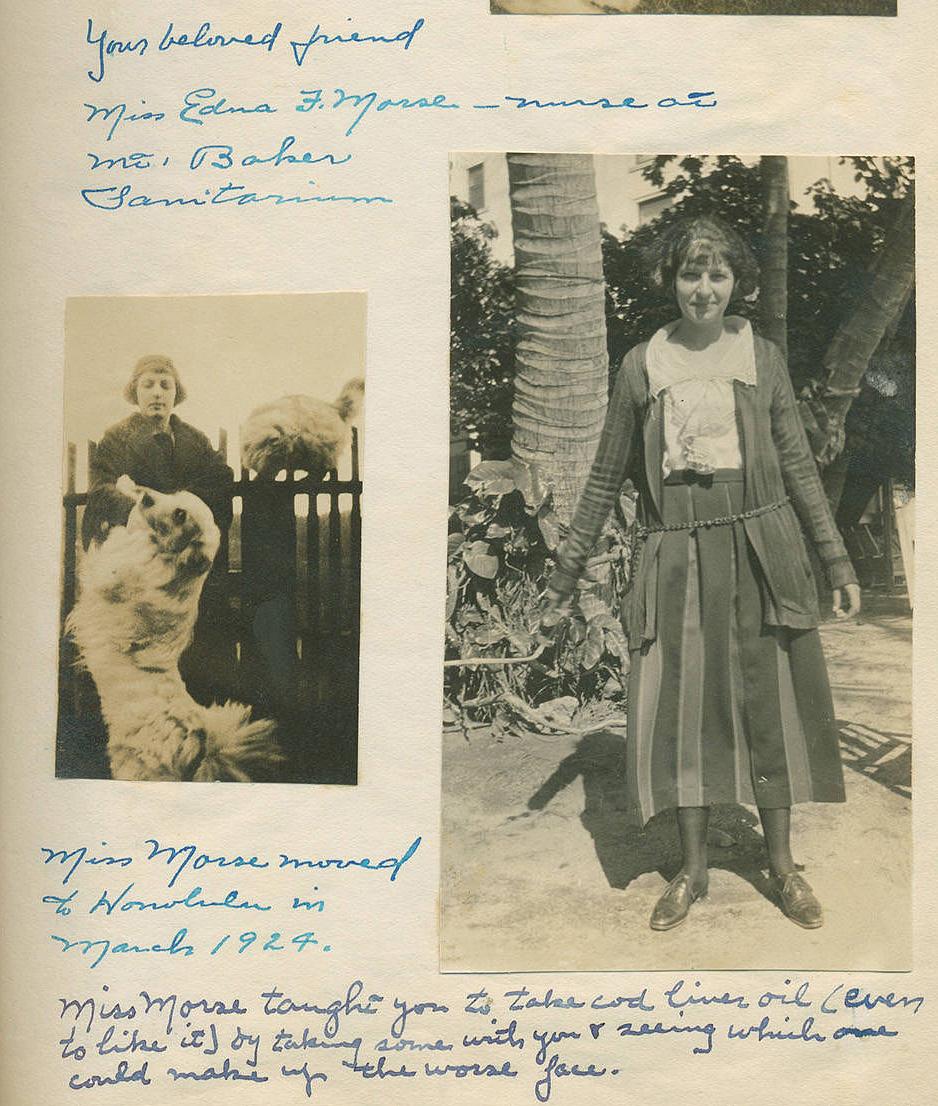 Your beloved friend
Miss Edna F. Morse - nurse at
Mt. Baker
Sanitarium
Miss Morse moved
to Honolulu in
March 1924.
Miss Morse taught you to take cod liver oil (even
to like it) by taking some with you & seeing which one
could make up the worse face.